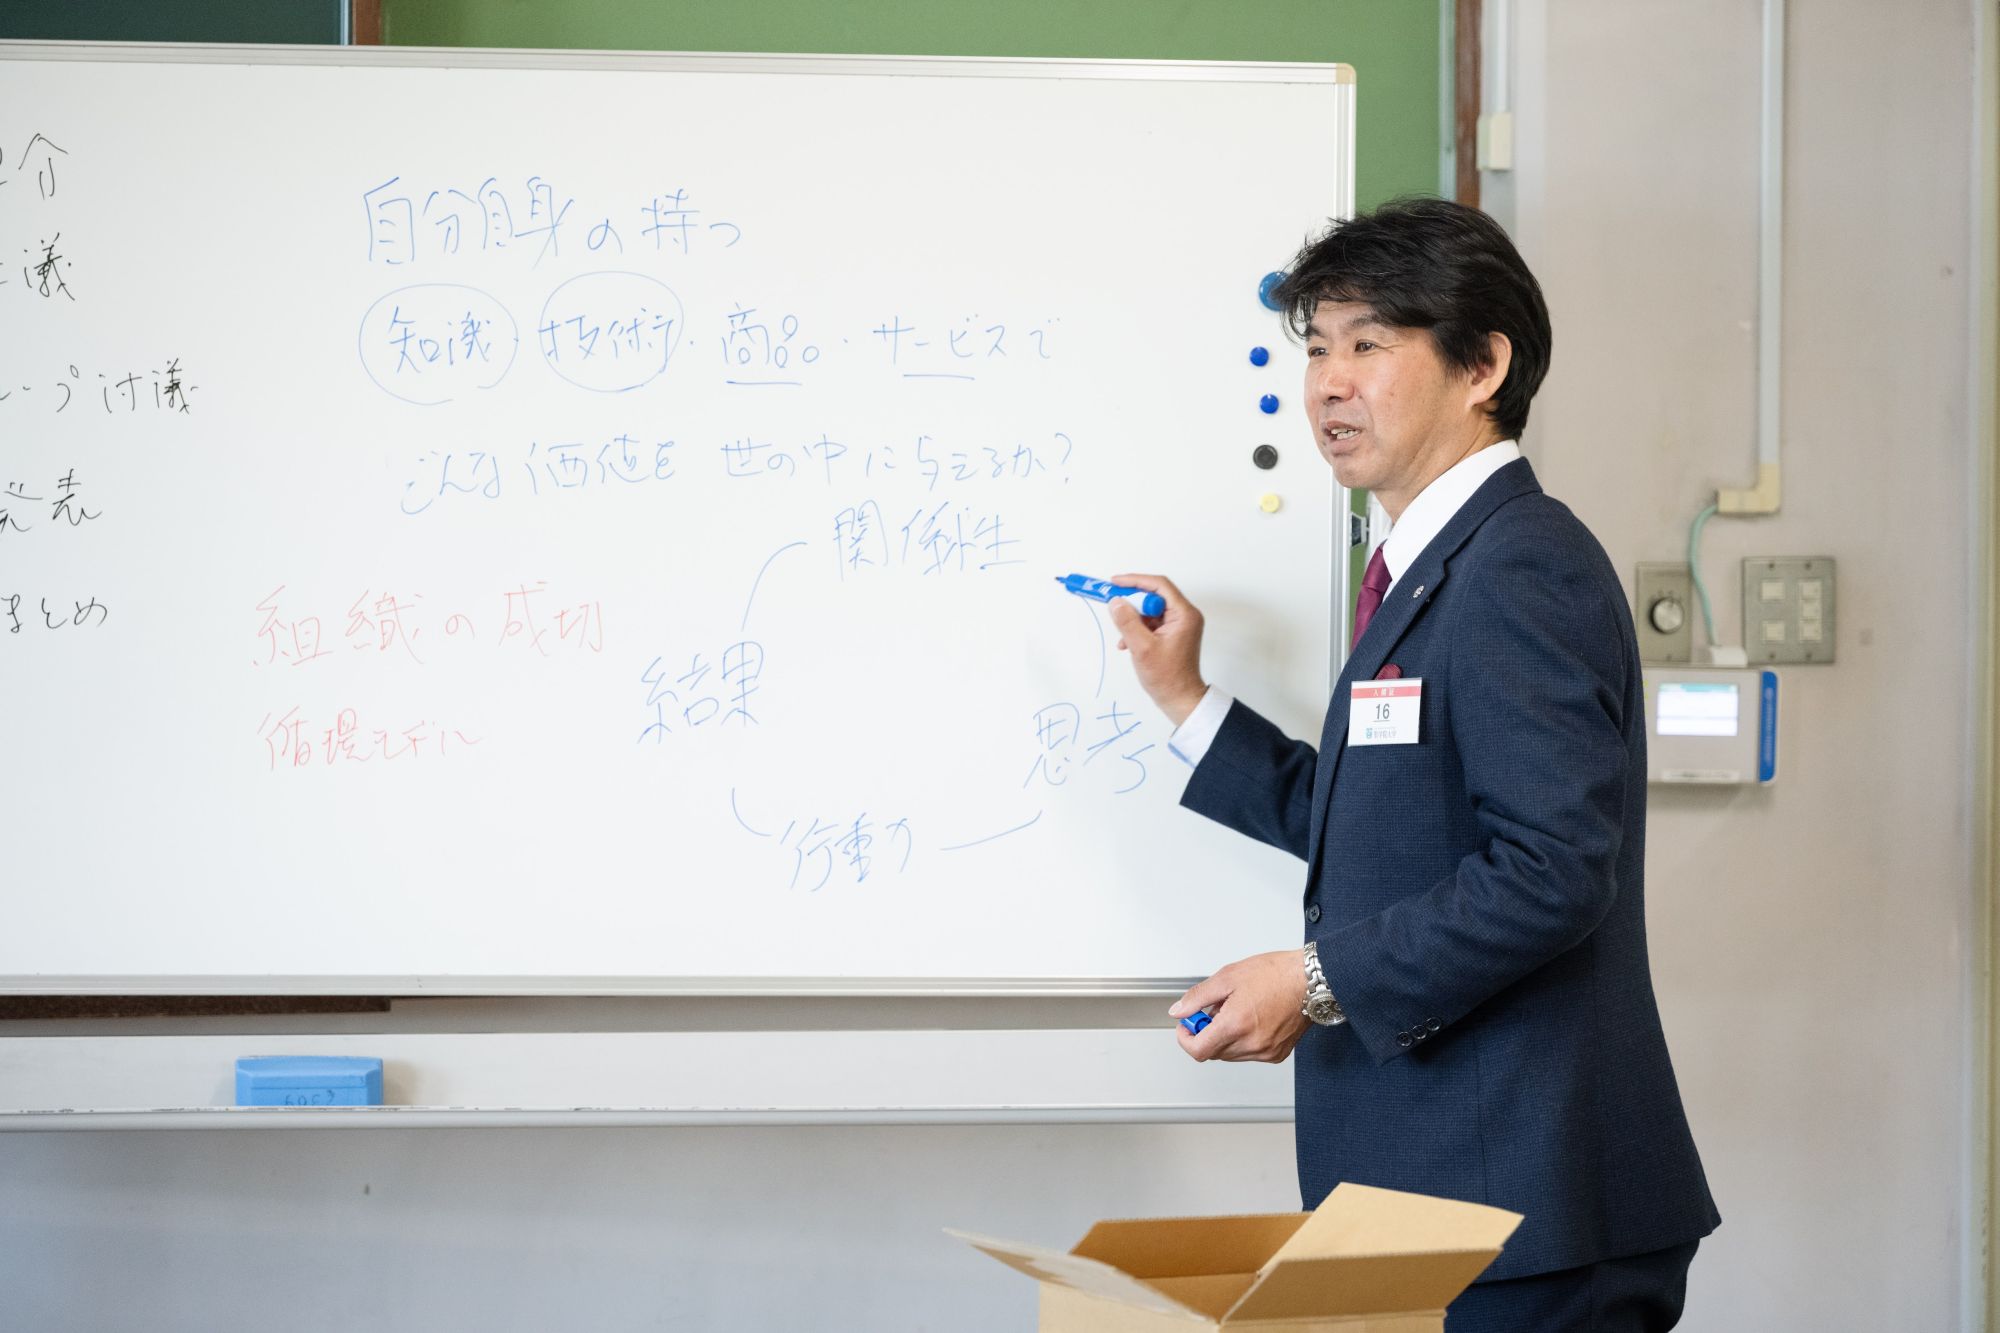 介
議
ープ討議
発表
まとめ
自分自身の持つ
知識・技術・商品・サービスで
どんな価値を世の中に与えるか?
関係性
組織の成功
循環モデル
結果
思考
行動
入構証
16